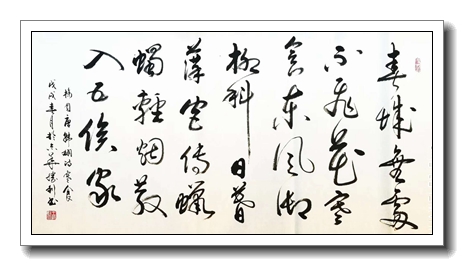 春城無處
不飛花寒
食東風御
柳斜日暮
漢宮傳蠟
燭輕烟散
入五侯家
摘自唐韓翃詩寒食
戊戌春月於